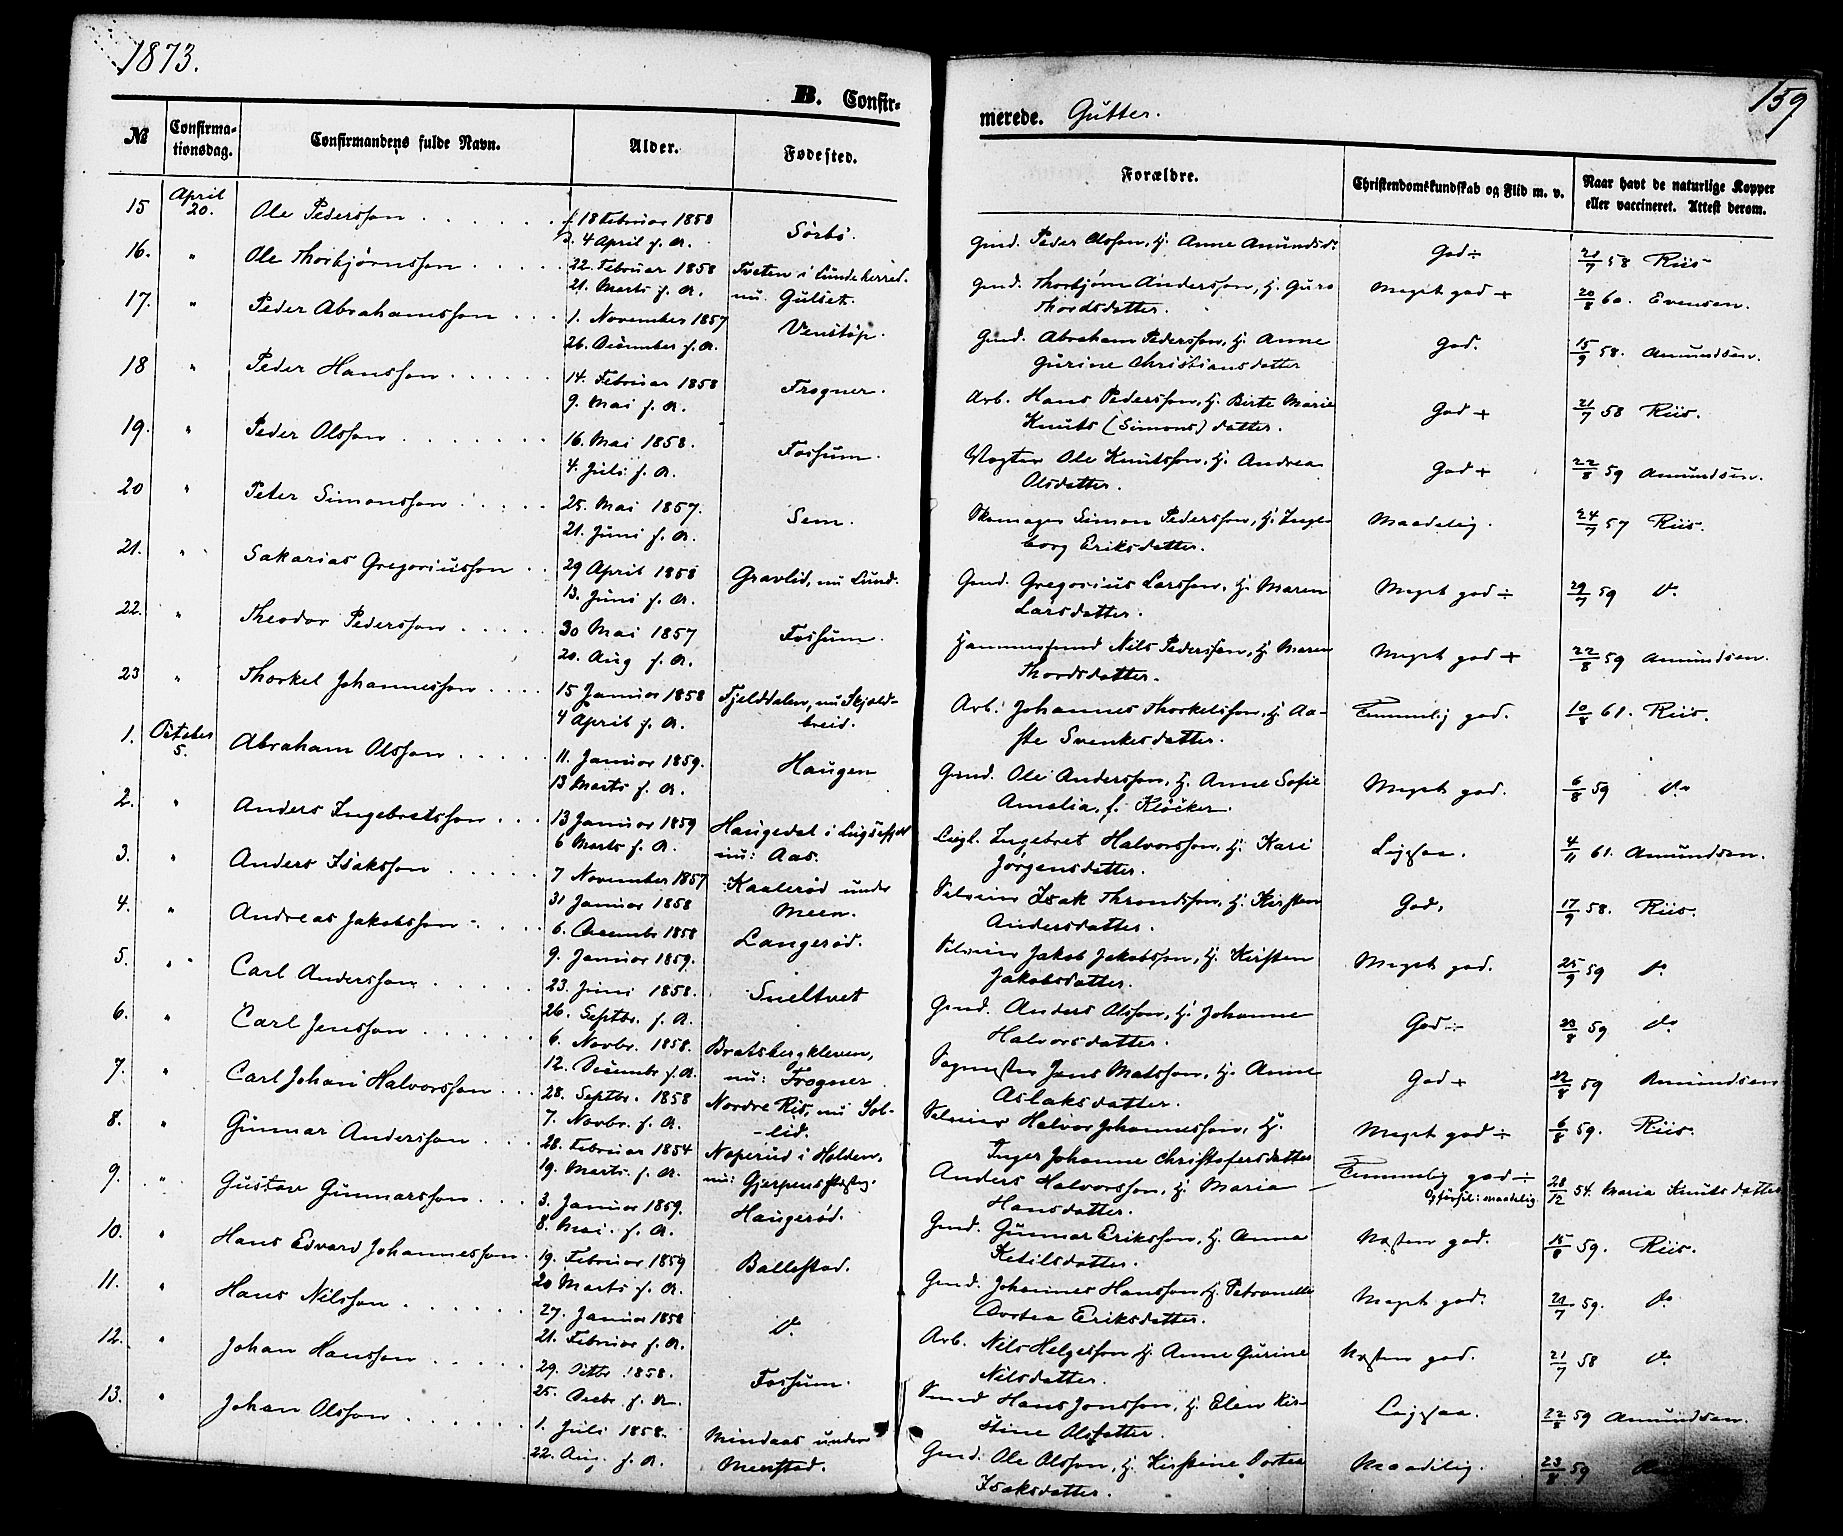 1873.
159
B. Confir-
merede. Gutter.
№
Confirma-
tionsdag.
Confirmandens fulde Navn.
Alder.
Fødested.
Forældre.
Christendomskundskab og Flid m. v.
Naar havt de naturlige Kopper
eller vaccineret. Attest derom.
15 April 20. Ole Pederssøn f. 18 Februar 1858
d. 4 April s. A. Sørbø. Gmd. Peder Olsson, H. Anne Amundsd. God ÷ 21/7 58 Riis
16. " Ole Thorbjørnssøn 22. Februar 1858
21. Marts s. A. Tveten i Lundeherred.
nu. Gulset. Gmd. Thorbjørn Anderssøn, H. Guro
Thordsdatter. Meget god + 20/8 60. Evensen.
17. " Peder Abrahamssøn 1. November 1857
26. December s. A. Venstøp. Gmd. Abraham Pederssøn, H. Anne
Gurine Christiansdatter God. 15/9 58. Amundsen.
18 " Peder Hanssøn 14. Februar 1858
9. Mai s. A. Frogner. Arb. Hans Pederssøn, H. Birte Marie
Knuts (Simons) datter. God + 21/7 58 Riis.
19. " Peder Olssøn 16. Mai 1858.
4. Juli s. A. Fossum. Vogter Ole Knutssøn, H. Andrea
Olsdatter. God + 22/8 59 Amundsen.
20 " Peter Simonssøn 25. Mai 1857.
21. Juni s. A. Sem. Skomager Simon Pederssøn, H. Inge-
borg Eriksdatter. Maadelig. 24/7 57 Riis.
21. " Sakarias Gregoriussøn 29 April 1858
13. Juni s. A. Gravlid, nu Lund. Gmd. Gregorius Larssøn, H. Maren
Larsdatter. Meget god ÷ 29/7 59 Do
22. " Theodor Pederssøn 30 Mai 1857
20. Aug s. A. Fossum. Hammersmed Nils Pederssøn, H. Maren
Thordsdatter. Meget god + 22/8 59 Amundsen.
23 " Thorkel Johannessøn 15 Januar 1858
4 April s. A. Fjelddalen, nu Skjold-
breid. Arb. Johannes Thorkelssøn, H. Aa-
ste Svenkesdatter. Temmelig god. 10/8 61. Riis.
1. October 5. Abraham Olssøn 11. Januar 1859.
13 Marts s. A. Haugen Gmd. Ole Anderssøn, H. Anne Sofie
Amalia, f. Kløcker. Meget god. 6/8 59 Do
2. " Anders Ingebretssøn 13 Januar 1859
6 Marts s. A. Haugedal i
nu: Aas. Ingebret Halvorssøn, H. Kari
Jørgensdatter. Ligesaa. 4/11 61. Amundsen.
3. " Anders Isakssøn 7 November 1857
31 Januar 1858 Kaalerød under
Meen. Selveier Isak Throndssøn, H. Kirsten
Andersdatter. God. 17/9 58. Riis.
4. " Andreas Jakobssøn 6. December 1858
9. Januar 1859. Langerød. Selveier Jakob Jakobssøn, H. Kirsten
Jakobsdatter. Meget god. 25/9 59 Do
5. " Carl Anderssøn 23. Juni 1858.
26. Septbr. s. A. Sneltvet Gmd. Anders Olssøn, H. Johanne
Halvorsdatter. God ÷ 23/8 59 Do
6. " Carl Jenssøn 6. Novbr. 1858.
12. Decembr s. A. Bratsbergkleven,
nu: Frogner. Jens Matssøn, H. Anne
Aslaksdatter. God + 22/8 59 Amundsen
7. " Carl Johan Halvorssøn 28. Septbr. 1858
7. Novbr. s. A. Nordre Ris, nu Sol-
-lid. Selveier Halvor Johannessøn, H.
Inger Johanne Christofersdatter Meget god ÷ 6/8 59. Riis.
8. " Gunnar Anderssøn 28. Februar 1854
19. Marts. s. A. Naperud i Holden,
nu: Anders Halvorssøn, H. Maria
Hansdatter. Temmelig god ÷
Opførsel: maadelig. 28/12 54. Maria Knutsdatter
9. " Gustav Gunnarssøn 3. Januar 1859.
8. Mai. s. A. Haugerød. Gmd. Gunnar Erikssøn, H. Anna
Ketilsdatter. Næsten god. 15/8 59. Riis.
10. " Hans Edvard Johannessøn 19. Februar 1859
20 Marts s. A. Ballestad. Gmd. Johannes Hanssøn, H. Petronelle
Dortea Eriksdatter. Meget god. 21/7 59. Do
11. " Hans Nilssøn 27. Januar 1858
21. Februar s. A. Do Arb. Nils Helgessøn, H. Anne Gurine
Nilsdatter. Næsten god. 21/7 58 Do
12. " Johan Hanssøn 29. Octbr 1858.
25. Decbr s. A. Fossum. Smed Hans Jonssøn, H. Elen Kir-
stine Olsdatter. Ligesaa. 22/8 59 Amundsen.
13. " Johan Olssøn 1. Juli 1858.
22. Aug. s. A. Mindaas under
Menstad. Gmd. Ole Olssøn, H. Kirstine Dortea
Isaksdatter. Maadelig. 23/8 59